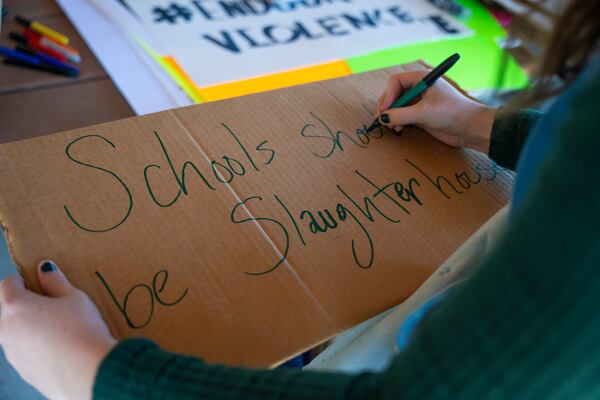 #ENDGUN
VIOLENCE
Schools shou
be Slaughterhous